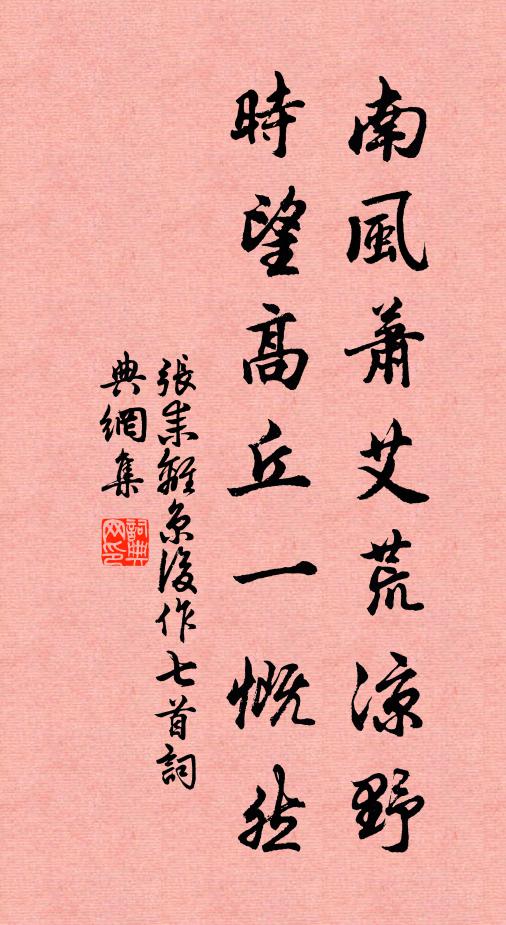 南風蕭艾荒涼野
時望高丘一慨然
張耒離京後作七首詞
典網集
詞典網印